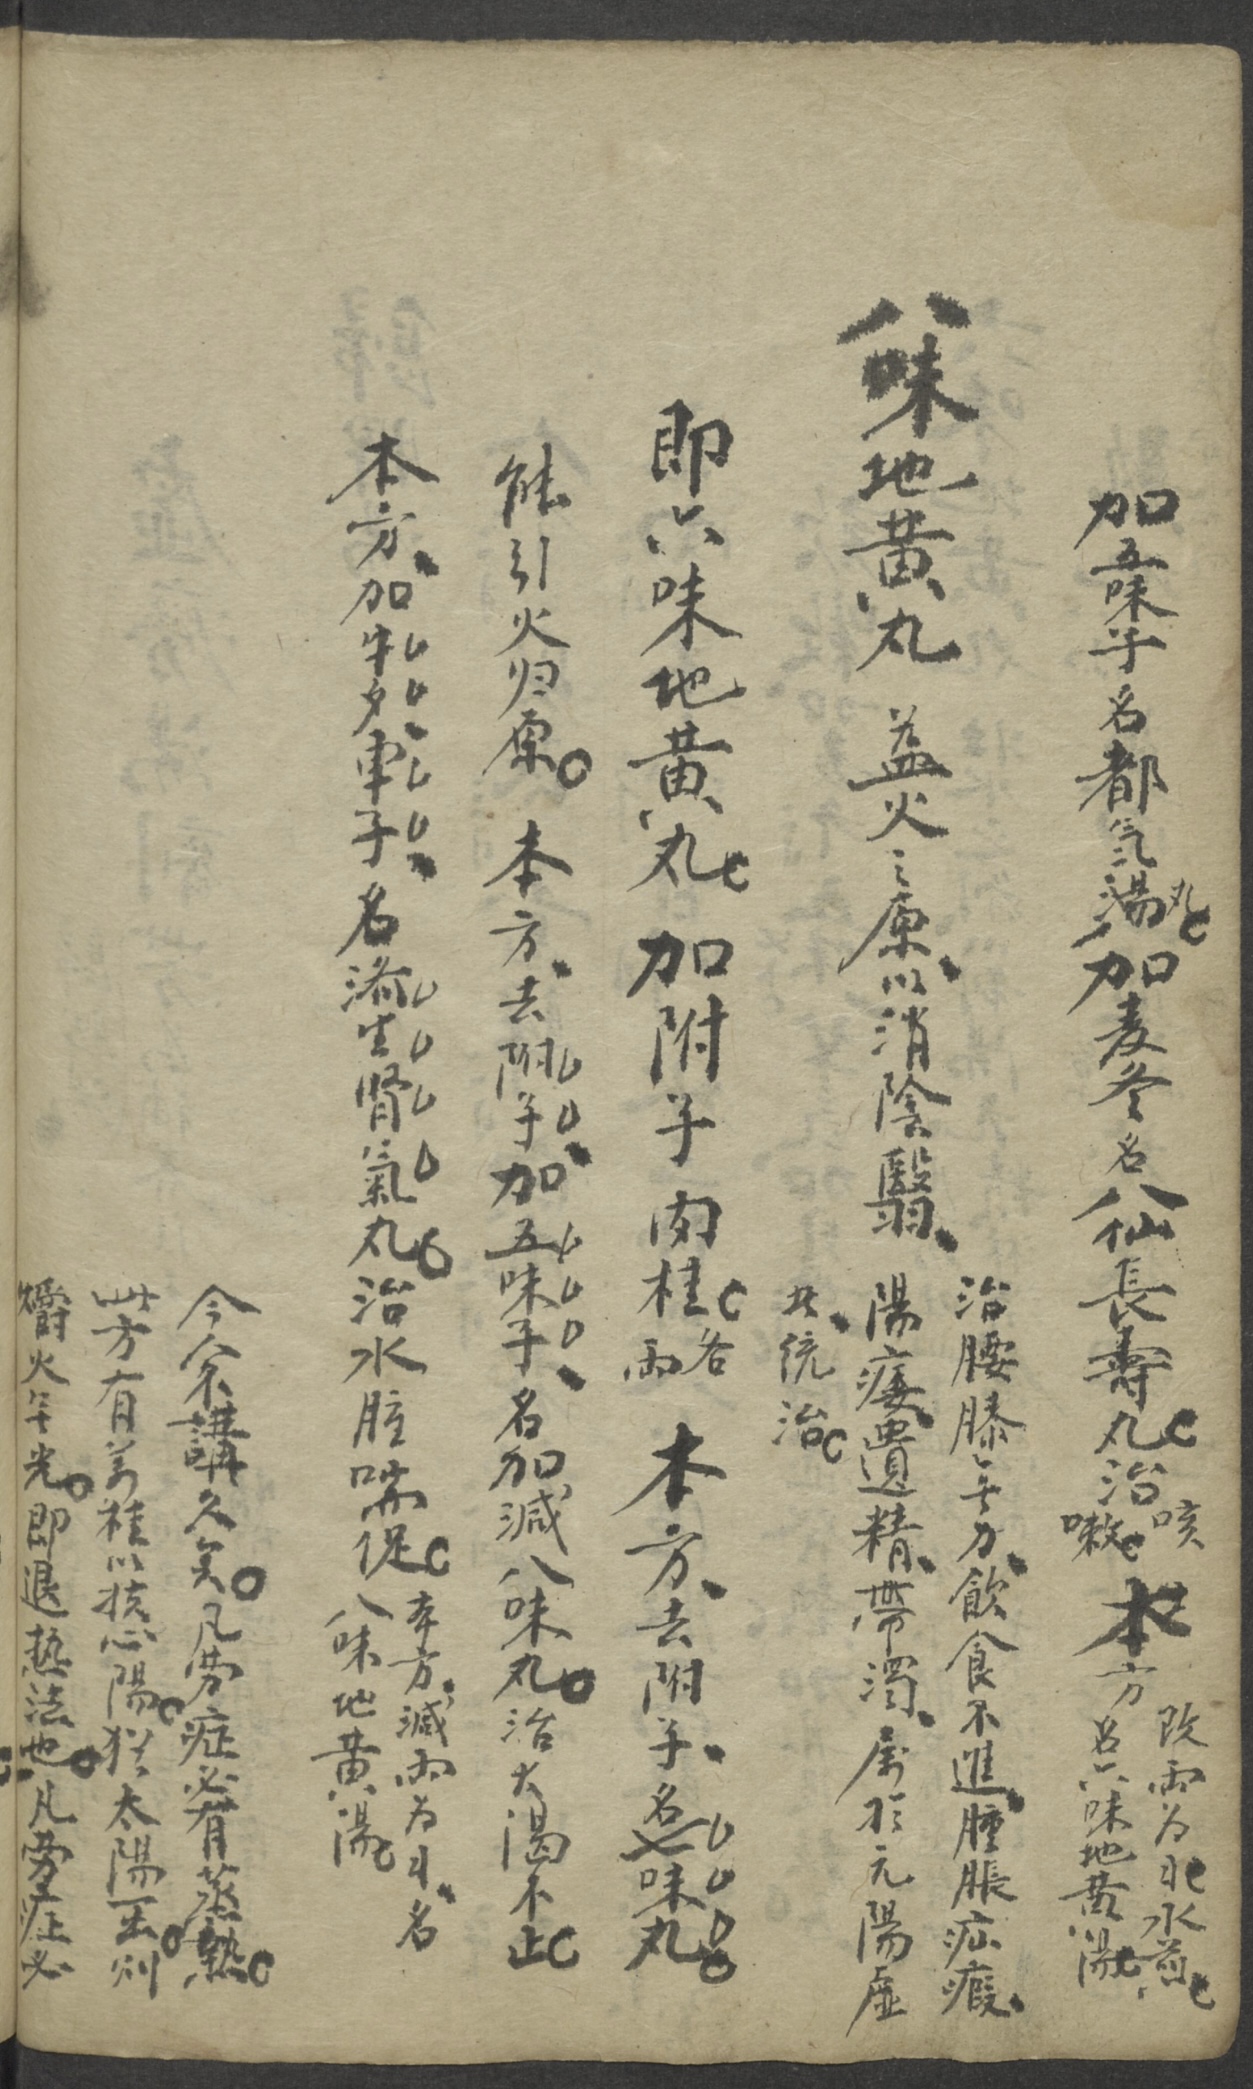 加五味子名都氣湯丸加麦冬名八仙長壽丸治咳嗽本方改両為水煎名六味地黄湯
八味地黄丸 益火之原以消陰翳
治腰膝無力飲食不進腫脹疝瘕
陽痿遺精帶濁属於元陽虚
共統治
即六味地黄丸加附子肉桂各両 本方去附子名七味丸
能引火归原 本方去附子加五味子名加减八味丸治大渴不止
本方加牛夕車子名济生腎氣丸治水脏喘促
本方減両為名
八味地黄湯
今余講久矣凡劳症必有蒸熱
此方有桂以心陽犹太陽一出則
爝火無光即退热法也凡劳症必